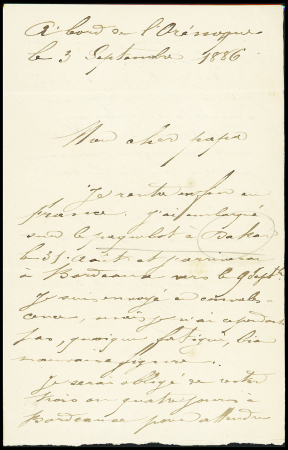 A bord de l'Orénoque
le 3 Septembre 1886
Mon cher papa
Je rentre enfin en
france. J'ai embarqué
sur le paquebot à Dakar
le 31 Août et arriverai
à Bordeaux vers le 9 Septbre
Je suis envoyé en convales-
cence, mais je n'ai cependant
pas, quoique fatigué,
mauvaise figure.
Je serai obligé de rester
trois ou quatre jours à
Bordeaux pour attendre